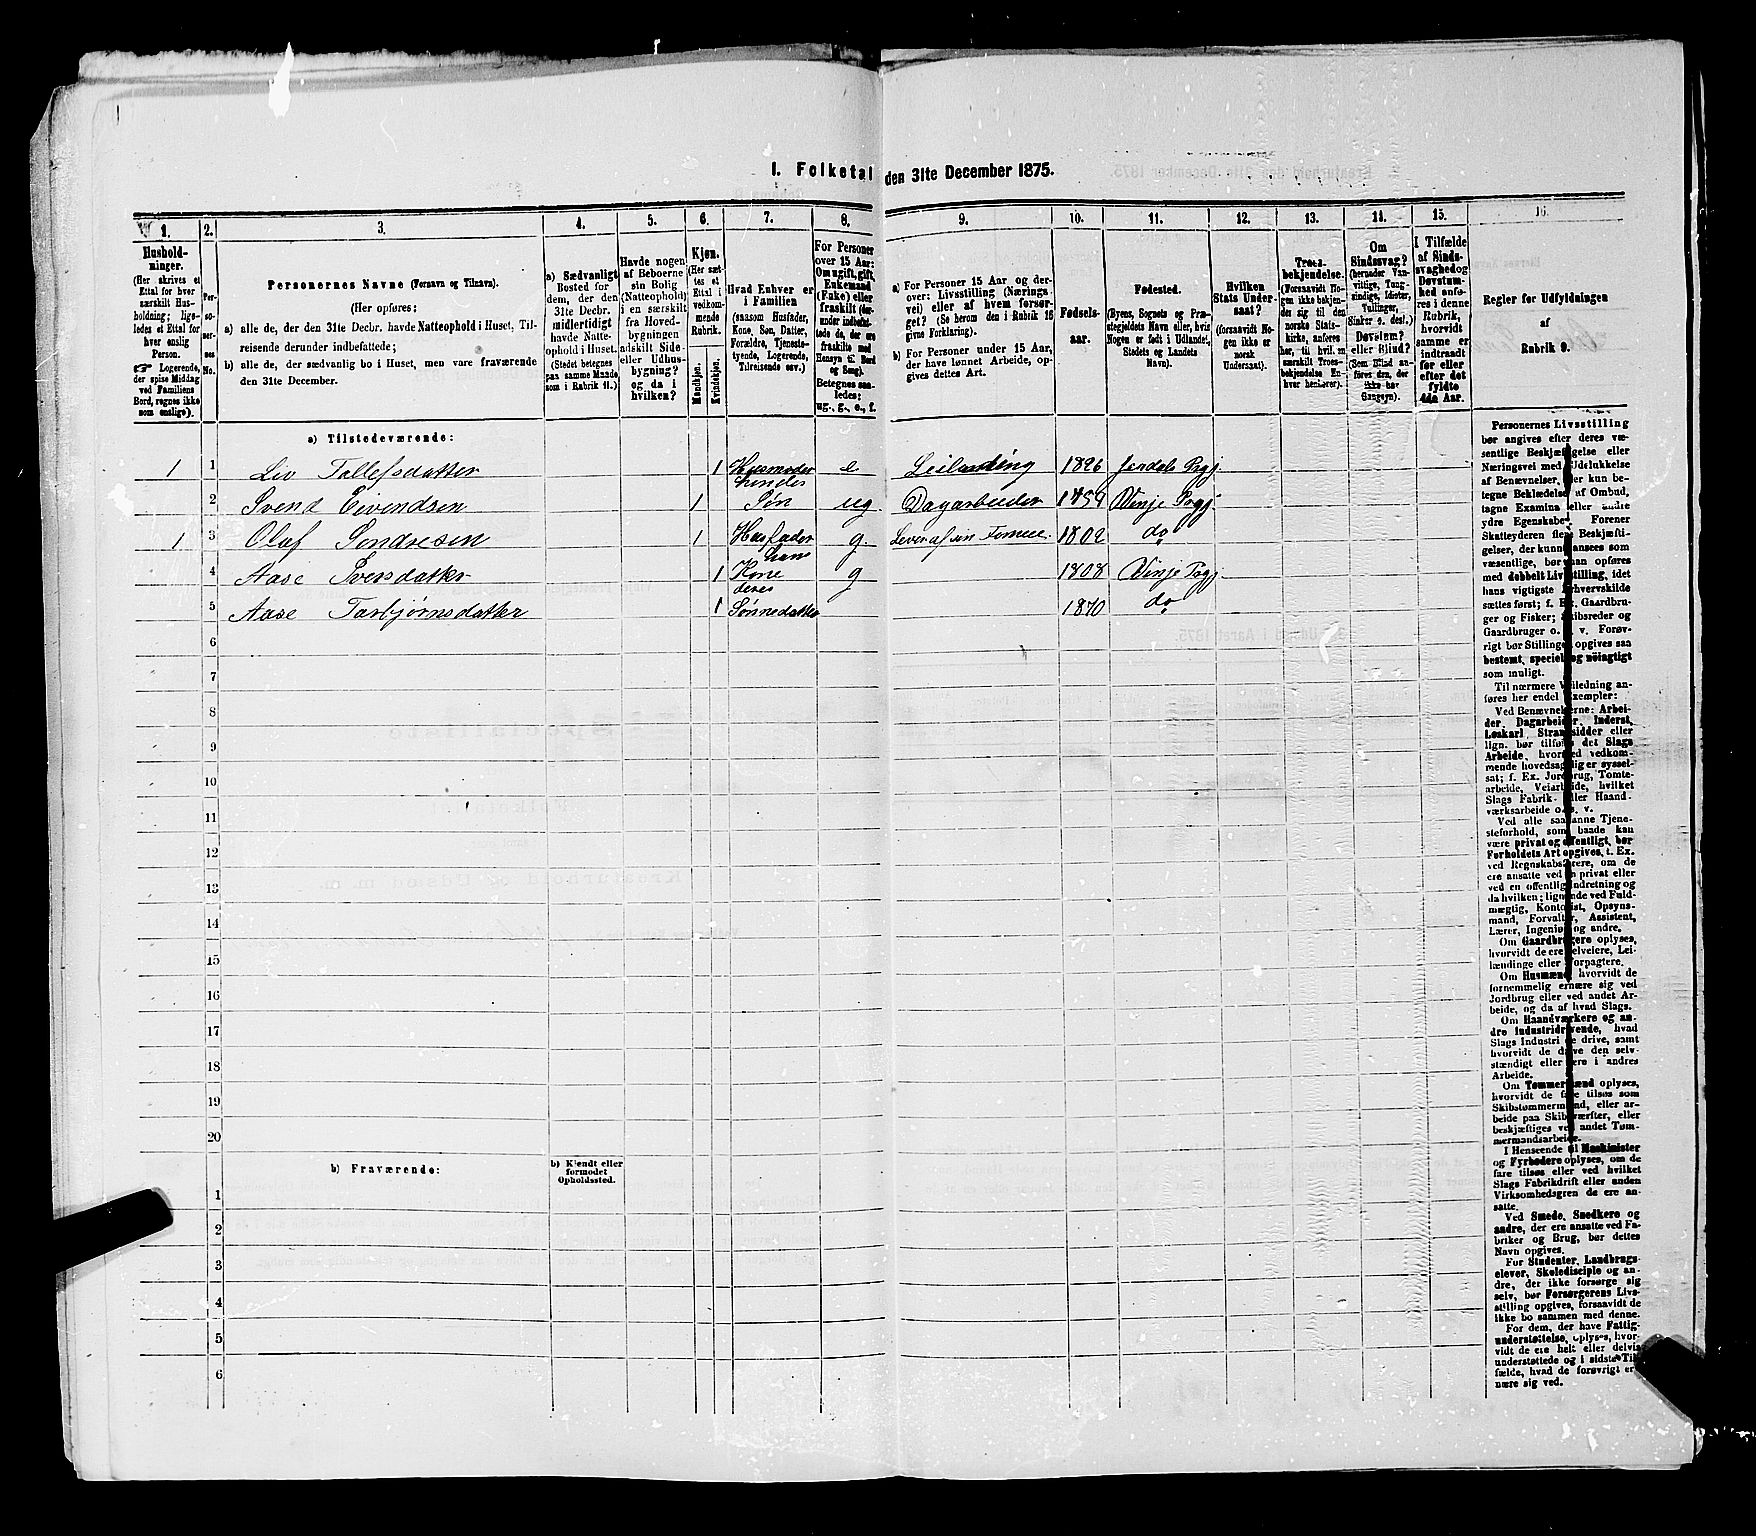 I. Folketal den 31te December 1875.
1. 2. 3. 4. 5. 6. 7. 8. 9. 10. 11. 12. 13. 14. 15. 16.
Hushold-
ninger.
(Her skrives et
Ettal for hver
særskilt Hus-
holdning; lige-
ledes et Ettal for
hver enslig
Person.
☞ Logerende,
der spise Middag
ved Familiens
Bord, regnes ikke
som enslige).
Per-
so-
ner-
nes
No.
Personernes Navne (Fornavn og Tilnavn).
(Her opføres:
a) alle de, der den 31te Decbr. havde Natteophold i Huset, Til-
reisende derunder indbefattede;
b) alle de, der sædvanlig bo i Huset, men vare fraværende
den 31te December.
a) Sædvanligt
Bosted for
dem, der den
31te Decbr.
midlertidigt
havde Natte-
ophold i Huset.
(Stedet betegnes
paa samme Maade,
som i Rubrik 11.)
Havde nogen
af Beboerne
sin Bolig
(Natteophold)
i en særskilt
fra Hoved-
bygningen
adskilt Side-
eller Udhus-
bygning?
og da i
hvilken?
Kjøn.
(Her sæt-
tes et
Ettal i
vedkom-
mende
Rubrik.
Mandkjøn.
Kvindekjøn.
Hvad Enhver er
i Familien
(saasom Husfader,
Kone, Søn, Datter,
Forældre, Tjeneste-
tyende, Logerende,
Tilreisende osv.)
For Personer
over 15 Aar:
Om ugift, gift,
Enkemand
(Enke) eller
fraskilt (der-
under indbefat-
tede de, der ere
fraskilte med
Hensyn til Bord
og Seng).
Betegnes saa-
ledes:
ug., g., e., f.
a) For Personer 15 Aar og der-
over: Livsstilling (Nærings-
vei) eller af hvem forsør-
get? (Se herom den i Rubrik 16
givne Forklaring).
b) For Personer under 15 Aar,
der have lønnet Arbeide, op-
gives dettes Art.
Fødsels-
aar.
Fødested.
(Byens, Sognets og Præ-
stegjeldets Navn eller, hvis
Nogen er født i Udlandet,
Stedets og Landets
Navn).
Hvilken
Stats Under-
saat?
(forsaavidt No-
gen ikke er
norsk
Undersaat).
Troes-
bekjendelse.
(Forsaavidt No-
gen ikke bekjen-
der sig til den
norske Stats-
kirke, anføres
her, til hvil en
særskilt Troes-
bekjendelse En-
hver henhører).
Om
Sindssvag?
(herunder Van-
vittige, Tung-
sindige, Idioter,
Tullinger,
Sinker o. desl.)
Døvstum?
eller Blind?
(Som Blind an-
føres den, der
ikke har
Gangsyn).
I Tilfælde
af Sinds-
svaghed og
Døvstum-
hed anfø-
res i denne
Rubrik,
hvorvidt
samme er
indtraadt
før eller
efter det
fyldte
4de Aar.
Regler for Udfyldningen
af
Rubrik 9.
a) Tilstedeværende:
1 1 Liv Tollefsdatter 1 Husmoder e Leilænding 1826 Prgj.
2 Svend Eivendsen 1 hendes Søn ug Dagarbeider Vinje Prgj.
1 3 Olaf Sondresen 1 Husfader g Lever af sin Formue. 1802 do
4 Aase Iversdatter 1 hans Kone g 1808 Vinje Prgj
5 Aase Torbjørnsdatter 1 deres Sønnedatter 1870 do
6
7
8
9
10
11
12
13
14
15
16
17
18
19
20
b) Fraværende:
b) Kjendt eller
formodet
Opholdssted.
1
2
3
4
5
6
Personernes Livsstilling
bør angives efter deres væ-
sentlige Beskjæftigelse eller
Næringsvei med Udelukkelse
af Benævnelser, der kun be-
tegne Beklædelse af Ombud,
tagne Examina eller andre
ydre Egenskaber. Forener
Skatteyderen flere Beskjæfti-
gelser, der kunne ansees som
væsentlige, bør han opføres
med dobbelt Livsstilling, idet
hans vigtigste Erhvervskilde
sættes først; f. Ex. Gaardbru-
ger og Fisker; Skibsreder og
Gaardbruger o. s. v. Forøv-
rigt bør Stillingen opgives saa
bestemt, specielt og nöiagtigt
som muligt.
Til nærmere Veiledning an-
føres her endel Exempler:
Ved Benævnelserne: Arbei-
der, Dagarbeider, Inderst,
Løskarl, Strandsidder eller
lign. bør tilføies det Slags
Arbeide, hvormed vedkom-
mende hovedsagelig er syssel-
sat; f. Ex. Jordbrug, Tomte-
arbeide, Veiarbeide, hvilket
Slags Fabrik- eller Haand-
værksarbeide o. s. v.
Ved alle saadanne Tjene-
steforhold, som baade kan
være privat og offentligt, bør
Forholdets Art opgives, t. Ex.
ved Regnskabsførere, om de
ere ansatte ved en privat eller
ved en offentlig Indretning og
da hvilken; lignende ved Fuld-
mægtig, Kontorist, Opsyns-
mand, Forvalter, Assistent,
Lærer, Ingeniør og andre.
Om Gaardbrugere oplyses,
hvorvidt de ere Selveiere, Lei-
lændinge eller Forpagtere.
Om Husmænd, hvorvidt de
fornemmelig ernære sig ved
Jordbrug eller ved andet Ar-
beide, og da af hvad Slags.
Om Haandværkere og an-
dre Industridrivende, hvad
Slags Industri de drive, samt
hvorvidt de drive den selv-
stændigt eller ere i andres
Arbeide.
Om Tømmermænd oplyses,
hvorvidt de fare tilsøs som
Skibstømmermænd, eller ar-
beide paa Skibsværfter, eller
beskjæftiges ved andet Tøm-
mermandsarbeide.
I Henseende til Maskinister
og Fyrbødere oplyses, om de
fare tilsøs eller ved hvilket
Slags Fabrikdrift eller anden
Virksomhedsgren de ere an-
satte.
Ved Smede, Snedkere og
andre, der ere ansatte ved Fa-
briker og Brug, bør dettes
Navn opgives.
For Studenter, Landbrugs-
elever, Skoledisciple og an-
dre, der ikke forsørge sig
selv, bør Forsørgerens Livs-
stilling opgives, forsaavidt de
ikke bo sammen med denne.
For dem, der have Fattig-
understøttelse, oplyses, hvor-
vidt de ere helt eller delvis
understøttede og i sidste Til-
fælde, hvad de forøvrigt er-
nære sig ved.